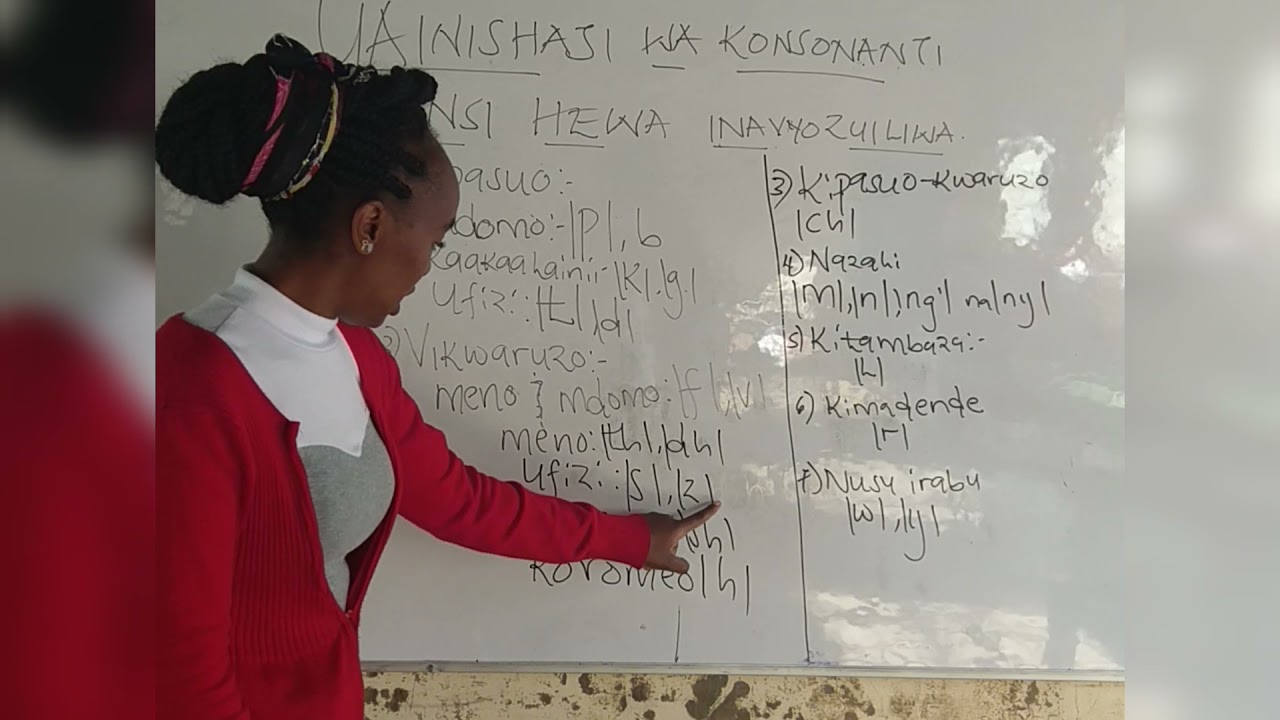 UAINISHAJI WA KONSONANTI
HEWA INAVYOZUILIWA.
mdomo:-|P|, b
Kaakaa laini:-|K|,|g|
Ufizi:|t|,|d|
2) Vikwaruzo:-
meno & mdomo:|f|,|v|
meno:|th|,|dh|
Ufizi:|S|,|Z|
|sh|
Koromeo|h|
3) Kipasuo-Kwaruzo
|ch|
4) Nazali
|m|,|n|,|ng'| na|ny|
5) Kitambaza:-
|L|
6) Kimadende
|r|
7) Nusu irabu
|w|,|y|